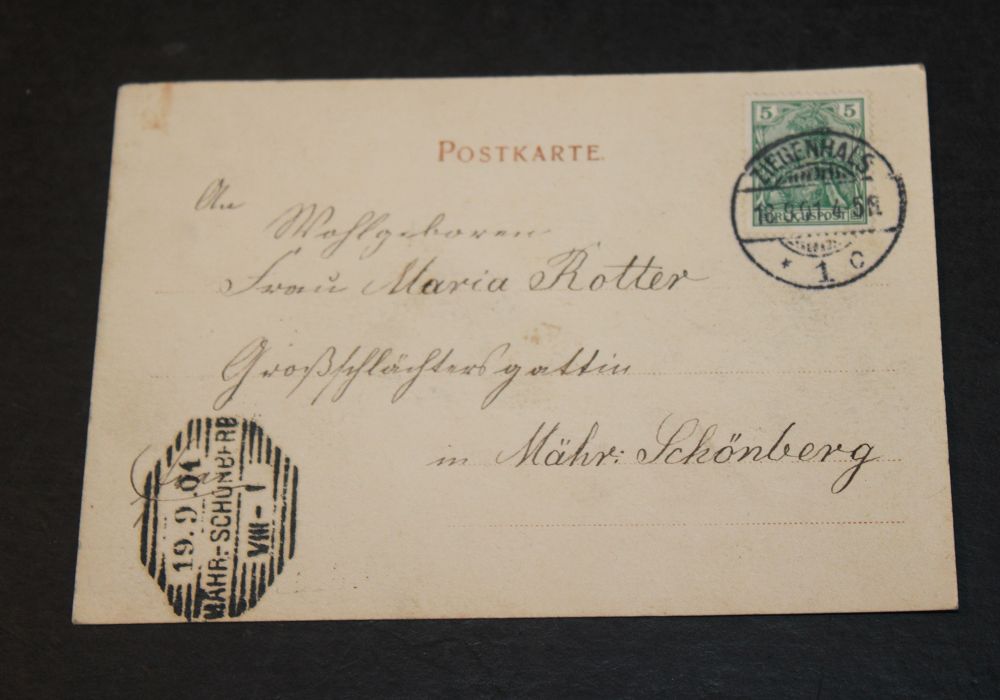 POSTKARTE.
5 5
REICHSPOST
ZIEGENHALS
18.9.01. 4-5N.
* 1 c
An
Wohlgeboren
Frau Maria Rotter
Großschlächtersgattin
in Mähr: Schönberg
19.9.01
MÄHR.-SCHÖNBERG
VIII-1